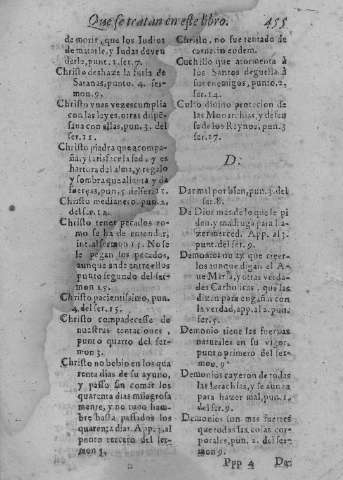 Que se tratan en este libro. 455
de morir, que los Judios
de matarle, y Judas de ven
derle, punt. 2. ser. 7.
Christo deshaze la furia de
Satanas, punto. 4. ser-
mon. 9.
Christo vnas vezes cumplia
con las leyes, otras dispẽ-
saua con ellas, pun. 3. del
ser. 11.
Christo piedra que acompa-
ña, y satisfaze la sed, y es
hartura del alma, y regalo
y sombra que alienta y da
fuerças, pun. 5. del ser. 12.
Christo medianero, pun. 2.
del ser. 12.
Christo tener pecados co-
mo se ha de entender,
ser. 15. No se
le pegan los pecados,
aunque ande entre ellos
punto segundo del ser-
mon 15.
Christo pacientissimo, pun.
4. del ser. 15.
Christo compadecesse de
nuestras tentaciones,
punto quarto del ser-
mon 3.
Christo no bebio en los qua
renta dias de su ayuno,
y passo sin comer los
quarenta dias milagrosa
mente, y no tuuo ham-
bre hasta passados los
quarenta dias. App. 3. al
punto tercero del ser-
mon 3.
Christo, no fue tentado de
carne.
Cuchillo que atormenta à
los Santos deguella à
sus enemigos, punto. 2,
ser. 14.
Culto diuino proteccion de
las Monarchias, y defen
sa de los Reynos, pun. 3
ser. 17.
D:
Dar mal por bien, pun. 3. del
ser. 8.
De Dios mas de lo que le pi
den, y madruga para ha-
zer merced. App. al 3.
punt. del ser. 9.
Demonios no ay que creer-
los aunque digan el A-
ue Maria, y otras verda-
des Catholicas, que las
dizen para engañar con
la verdad, app. al 2. punt.
ser. 5.
Demonio tiene las fuerças
naturales en su vigor,
punto primero del ser-
mon. 9.
Demonios cayeron de todas
las Ierarchias, y se aunan
para hazer mal, pun. 1.
del ser. 9.
Demonios son mas fuertes
que todas las cosas cor-
porales, pun. 2. del ser-
mon 9.
Ppp 4 De-